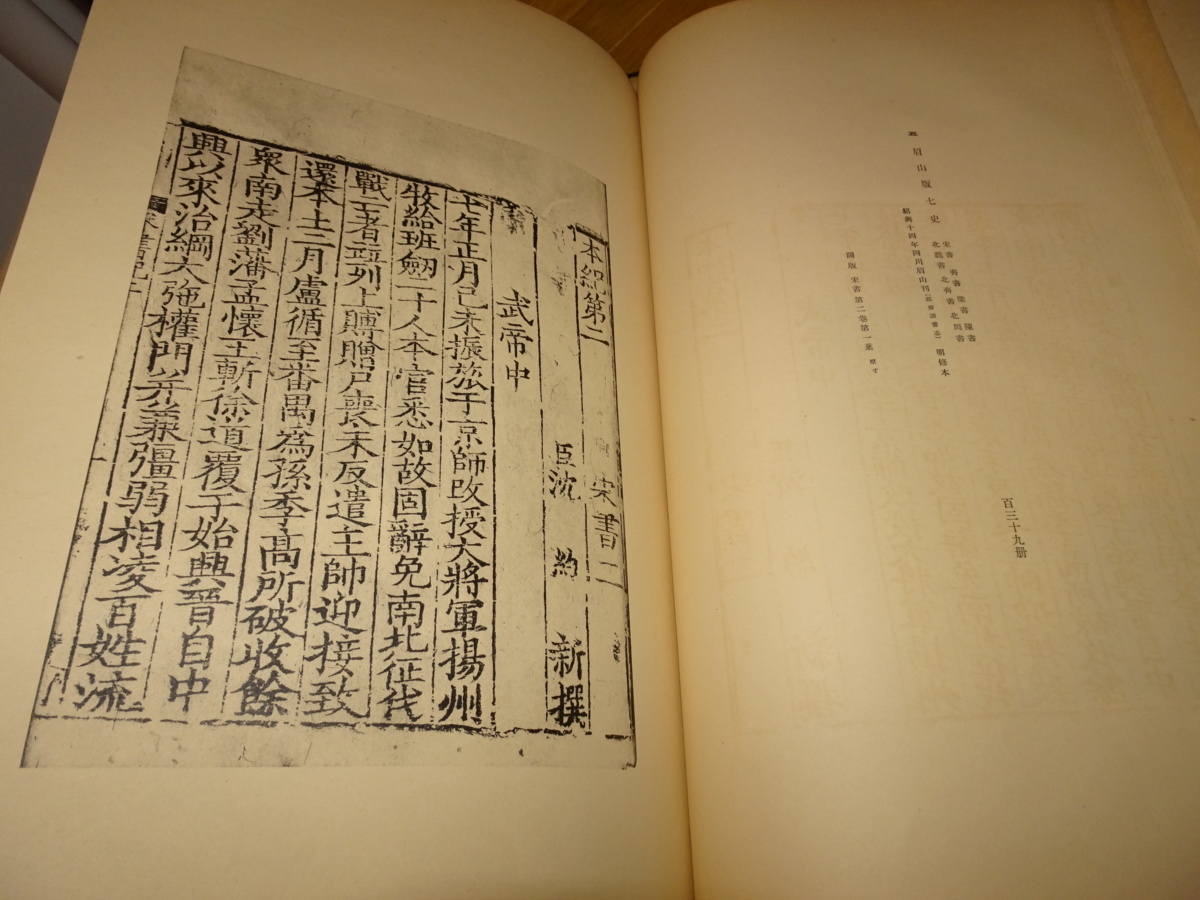 五 眉山版七史
宋書 齊書 梁書 陳書
北魏書 北齊書 北周書
紹興十四年四川眉山刊 明修本
圖版 宋書第二卷第一葉 原寸
百三十九册
本紀第二 宋書二
臣沈約新撰
武帝中
七年正月己未振旅于京師改授大將軍揚州
牧給班劔二十人本官悉如故固辭免南北征伐
戰亡者竝列上賻贈尸喪未反遣主帥迎接致
還本土二月盧循至番禺爲孫季高所破收餘
衆南走劉藩孟懷玉斬徐道覆于始興晉自中
興以來治綱大弛權門并兼彊弱相凌百姓流